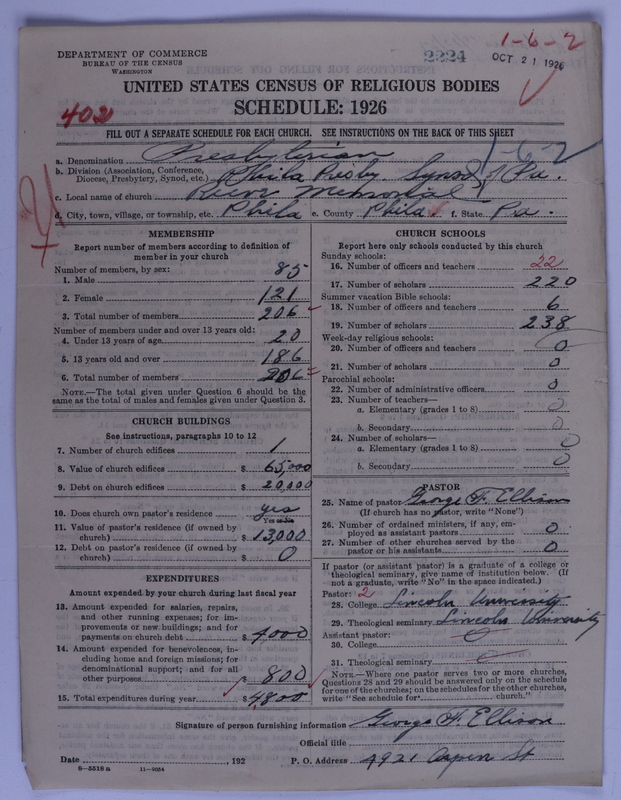 1-6-2
DEPARTMENT OF COMMERCE
BUREAU OF THE CENSUS
WASHINGTON
2224
OCT 21 1926
UNITED STATES CENSUS OF RELIGIOUS BODIES
SCHEDULE: 1926
402
FILL OUT A SEPARATE SCHEDULE FOR EACH CHURCH. SEE INSTRUCTIONS ON THE BACK OF THIS SHEET
1-6-2
a. Denomination Presbyterian
b. Division (Association, Conference, Diocese, Presbytery, Synod, etc.) Phila Presby. Synod Pa.
c. Local name of church Memorial
d. City, town, village, or township, etc. Phila e. County Phila. f. State Pa.
MEMBERSHIP
Report number of members according to definition of
member in your church
Number of members, by sex:
1. Male 85
2. Female 121
3. Total number of members 206
Number of members under and over 13 years old:
4. Under 13 years of age 20
5. 13 years old and over 186
6. Total number of members 206
NOTE.—The total given under Question 6 should be
same as the total of males and females given under Question 3.
CHURCH BUILDINGS
See instructions, paragraphs 10 to 12
7. Number of church edifices 1
8. Value of church edifices $ 65,000
9. Debt on church edifices $ 20,000
10. Does church own pastor's residence yes
Yes or No
11. Value of pastor's residence (if owned by
church) $ 13,000
12. Debt on pastor's residence (if owned by
church) $ 0
EXPENDITURES
Amount expended by your church during last fiscal year
13. Amount expended for salaries, repairs,
and other running expenses; for im-
provements or new buildings; and for
payments on church debt $ 4000
14. Amount expended for benevolences, in-
cluding home and foreign missions; for
denominational support; and for all
other purposes $ 800
15. Total expenditures during year $ 4800
CHURCH SCHOOLS
Report here only schools conducted by this church
Sunday schools:
16. Number of officers and teachers 22
17. Number of scholars 220
Summer vacation Bible schools:
18. Number of officers and teachers 6
19. Number of scholars 238
Week-day religious schools:
20. Number of officers and teachers 0
21. Number of scholars 0
Parochial schools:
22. Number of administrative officers 0
23. Number of teachers—
a. Elementary (grades 1 to 8) 0
b. Secondary 0
24. Number of scholars—
a. Elementary (grades 1 to 8) 0
b. Secondary 0
PASTOR
25. Name of pastor George F. Ellison
(If church has no pastor, write "None")
26. Number of ordained ministers, if any, em-
ployed as assistant pastors 0
27. Number of other churches served by the
pastor or his assistants 0
If pastor (or assistant pastor) is a graduate of a college or
theological seminary, give name of institution below. (If
not a graduate, write "No" in the space indicated.)
Pastor: 2
28. College Lincoln University
29. Theological seminary Lincoln University
Assistant pastor:
30. College 0
31. Theological seminary 0
NOTE.—Where one pastor serves two or more churches,
Questions 28 and 29 should be answered only on the schedule
for one of the churches; on the schedules for the other churches,
write "See schedule for church."
Signature of person furnishing information George F. Ellison
Official title
Date , 192 P. O. Address 4921 Aspen St
8-5518 a 11-9054